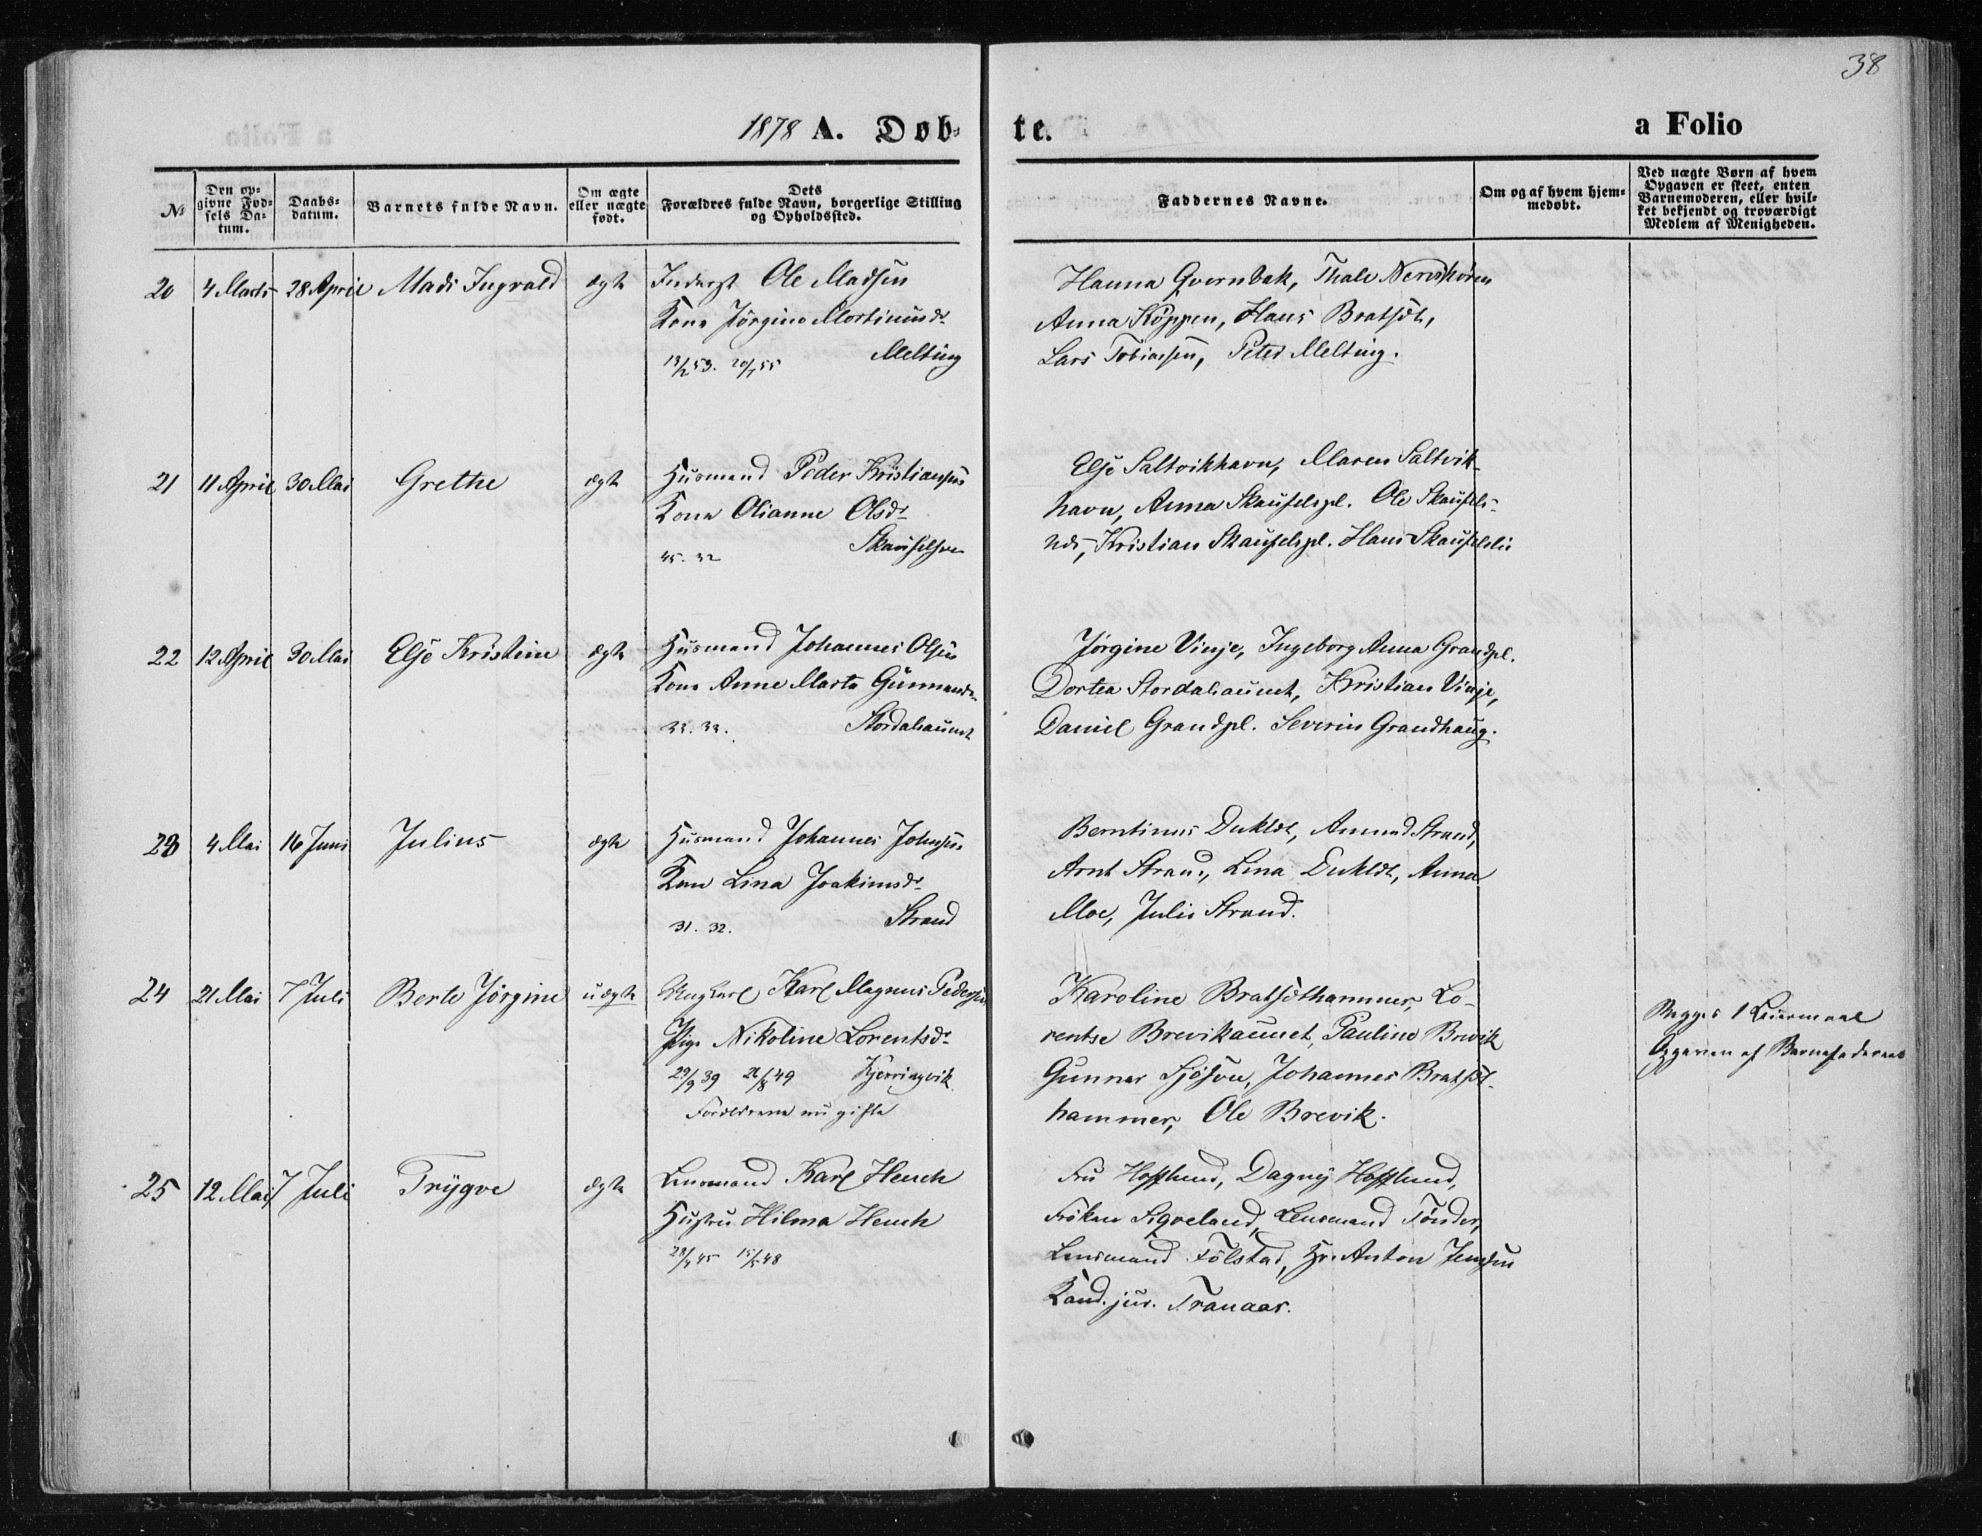 38
1878 A. Døb-
te.
a Folio
No
Den op-
givne Fød-
sels Da-
tum.
Daabs-
datum.
Barnets fulde Navn.
Om ægte
eller uægte
født.
Dets
Forældres fulde Navn, borgerlige Stilling
og Opholdssted.
Faddernes Navne.
Om og af hvem hjem-
medøbt.
Ved uægte Børn af hvem
Opgaven er skeet, enten
Barnemoderen, eller hvil-
ket bekjendt og troværdigt
Medlem af Menigheden.
20 4 Marts 28 April Mads Ingvald ægte
Inderst Ole Madsen
Kone Jørgine Mortinusdr
Melting
Hanna Qvernbak, Thale
Anna Køppen, Hans Bratsdt,
Lars Tobiassen, Peter Melting.
21 11 April 30 Mai Grethe ægte
Husmand Peder Kristiansen
Kone Olianne Olsdr
45. 32
Else Saltvikhavn, Maren Saltvik-
havn, Anna Skaufelspl. Ole Skaufels-
Kristian Skaufelspl. Hans
22 12 April 30 Mai Else Kristine ægte
Husmand Johannes Olsen
Kone Anne Marta
33. 33. Stordalsaunet
Jørgine Vinje, Ingeborg Anna Grandpl.
Dortea Stordalsaunet, Kristian Vinje,
Daniel Grandpl. Severin Grandhaug.
23 4 Mai 16 Juni Julius ægte
Husmand Johannes Johnsen
Kone Lina Joakimsdr
31. 32. Strand
Berntinus Amund Strand,
Arnt Strand, Lina Anna
Moe, Julie Strand.
24 21 Mai 7 Juli Berte Jørgine uægte
Ungkarl Karl Magnus Pedersen
Pige Nikoline Lorentsdr
23/9 39 21/8 49 Kjerringvik
Forældrene nu gifte
Karoline Bratsdthammer, Lo-
rentse Brevikaunet, Pauline Brevik
Gunner Johannes Bratsdt-
hammer, Ole Brevik.
Begges 1 Leiermaal
Opgaven af Barnefaderen
25 12 Mai 7 Juli Trygve ægte
Lensmand Karl Hench
Hustru Hilma Hench
23/4 45 15/5 48
Fru Hofflund, Dagny Hofflund,
Frøken Sigveland, Lensmand Tønder,
Lensmand Følstad, Hr. Anton Jenssen
Kand. jur. Tranaas.